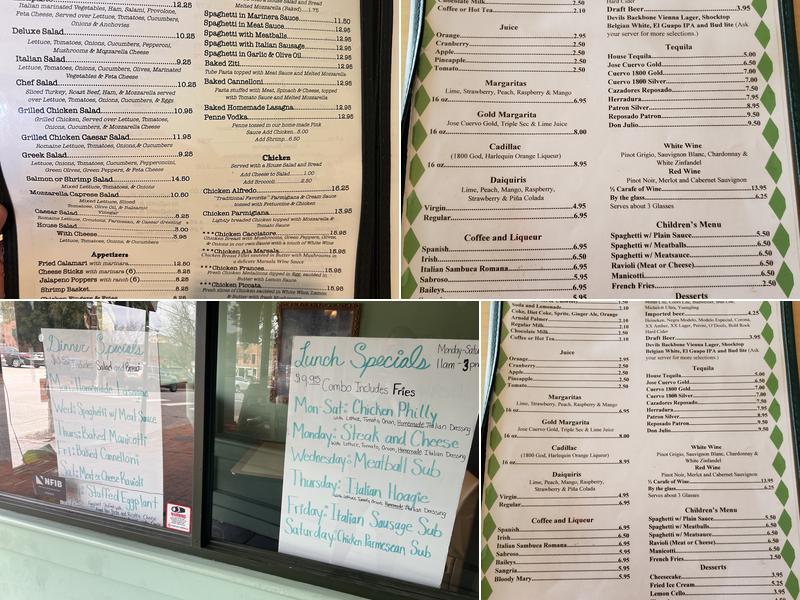 12.25
Italian marinated Vegetables, Ham, Salami, Provolone,
Feta Cheese, Served over Lettuce, Tomatoes, Cucumbers,
Onions & Anchovies
Deluxe Salad 10.25
Lettuce, Onions, Tomatoes, Cucumbers, Pepperoni,
Mushrooms & Mozzarella Cheese
Italian Salad 9.25
Lettuce, Onions, Tomatoes, Cucumbers, Olives, Marinated
Vegetables & Feta Cheese
Chef Salad 10.25
Sliced Turkey, Roast Beef, Ham, & Mozzarella served
over Lettuce, Tomatoes, Onions, Cucumbers, & Eggs
Grilled Chicken Salad 10.95
Grilled Chicken, Served over Lettuce, Tomatoes,
Onions, Cucumbers, & Mozzarella Cheese
Grilled Chicken Caesar Salad 11.95
Romaine Lettuce, Tomatoes, Onions, & Cucumbers
Greek Salad 9.25
Lettuce, Onions, Tomatoes, Cucumbers, Pepperoncini,
Green Olives, Green Peppers, & Feta Cheese
Salmon or Shrimp Salad 14.50
Mixed Lettuce, Tomatoes, & Onions
Mozzarella Caprese Salad 10.50
Mixed Lettuce, Sliced
Tomatoes, Olive Oil, & Balsamic
Vinegar
Caesar Salad 5.25
Romaine Lettuce, Croutons, Parmesan, & Caesar dressing
House Salad 3.00
With Cheese 3.95
Lettuce, Tomatoes, Onions, & Cucumbers
Appetizers
Fried Calamari with marinara 12.50
Cheese Sticks with marinara (6) 8.25
Jalapeno Poppers with ranch (6) 8.25
Shrimp Basket 8.25
Chicken Fingers & Fries
Served with a House Salad and Bread
Melted Mozzarella (Baked) 1.75
Spaghetti in Marinera Sauce 11.50
Spaghetti in Meat Sauce 12.95
Spaghetti with Meatballs 12.95
Spaghetti with Italian Sausage 12.95
Spaghetti in Garlic & Olive Oil 12.95
Baked Ziti 12.95
Tube Pasta topped with Meat Sauce and Melted Mozzarella
Baked Cannelloni 12.95
Pasta stuffed with Meat, Spinach & Cheese, topped
with Tomato Sauce and Melted Mozzarella
Baked Homemade Lasagna 12.95
Penne Vodka 12.95
Penne tossed in our homemade Pink
Sauce Add Chicken...3.00
Add Shrimp...6.50
Chicken
Served with a House Salad and Bread
Add Cheese to Salad 1.00
Add Broccoli 2.50
Chicken Alfredo 16.25
"Traditional Favorite" Parmigiana & Cream Sauce
tossed with Fettuccine & Chicken
Chicken Parmigiana 15.95
Lightly breaded Chicken topped with Mozzarella &
Tomato Sauce
***Chicken Cacciatore 15.95
Chicken Breast with Mushrooms, Green Peppers, Olives,
& Onions in our own Sauce with a touch of White Wine
***Chicken Ala Marsala 15.95
Chicken Breast Fillet sauteed in Butter with Mushrooms in
a delicate Marsala Wine Sauce
***Chicken Frances 15.95
Fresh Chicken Medallions dipped in Egg, sauteed in
Butter with Lemon Sauce
***Chicken Piccata 15.95
Fresh slices of Chicken sauteed in White Wine, Lemon
Chocolate Milk 2.50
Coffee or Hot Tea 2.10
Juice
Orange 2.95
Cranberry 2.95
Apple 2.50
Pineapple 2.50
Tomato 2.50
Margaritas
Lime, Strawberry, Peach, Raspberry & Mango
16 oz 6.95
Gold Margarita
Jose Cuervo Gold, Triple Sec & Lime Juice
16 oz 8.00
Cadillac
(1800 God, Harlequin Orange Liqueur)
16 oz 8.95
Daiquiris
Lime, Peach, Mango, Raspberry,
Strawberry & Piña Colada
Virgin 4.95
Regular 6.95
Coffee and Liqueur
Spanish 6.95
Irish 6.50
Italian Sambuca Romana 6.95
Sabroso 5.95
Baileys 5.95
Hard Cider
Draft Beer 3.95
Devils Backbone Vienna Lager, Shocktop
Belgian White, El Guapo IPA and Bud lite (Ask
your server for more selections.)
Tequila
House Tequila 5.00
Jose Cuervo Gold 6.50
Cuervo 1800 Gold 7.00
Cuervo 1800 Silver 7.00
Cazadores Reposado 7.50
Herradura 7.95
Patron Silver 8.95
Reposado Patron 9.50
Don Julio 9.50
White Wine
Pinot Grigio, Sauvignon Blanc, Chardonnay &
White Zinfandel
Red Wine
Pinot Noir, Merlot and Cabernet Sauvignon
½ Carafe of Wine 13.95
By the glass 6.25
Serves about 3 Glasses
Children's Menu
Spaghetti w/ Plain Sauce 5.50
Spaghetti w/ Meatballs 6.50
Spaghetti w/ Meatsauce 6.50
Ravioli (Meat or Cheese) 6.50
Manicotti 6.50
French Fries 2.50
Desserts
Dinner Specials
Includes Salad and Bread
Mon: Homemade Lasagna
Wed: Spaghetti w/ Meat Sauce
Thurs: Baked Manicotti
Fri: Baked Cannelloni
Sat: Meat or Cheese Ravioli
Stuffed Eggplant
NFIB
Lunch Specials
Monday-Satu
11am-3pm
$9.95 Combo Includes Fries
Mon-Sat: Chicken Philly
with Lettuce, Tomato, Onion, Homemade Italian Dressing
Monday: Steak and Cheese
with Lettuce, Tomato, Onion, Homemade Italian Dressing
Wednesday: Meatball Sub
Thursday: Italian Hoagie
with Lettuce, Tomato, Onion, Homemade Italian Dressing
Friday: Italian Sausage Sub
Saturday: Chicken Parmesean Sub
Soda and Lemonade 2.10
Coke, Diet Coke, Sprite, Ginger Ale, Orange
Arnold Palmer 2.10
Regular Milk 2.10
Chocolate Milk 2.50
Coffee or Hot Tea 2.10
Juice
Orange 2.95
Cranberry 2.95
Apple 2.50
Pineapple 2.50
Tomato 2.50
Margaritas
Lime, Strawberry, Peach, Raspberry & Mango
16 oz 6.95
Gold Margarita
Jose Cuervo Gold, Triple Sec & Lime Juice
16 oz 8.00
Cadillac
(1800 God, Harlequin Orange Liqueur)
16 oz 8.95
Daiquiris
Lime, Peach, Mango, Raspberry,
Strawberry & Piña Colada
Virgin 4.95
Regular 6.95
Coffee and Liqueur
Spanish 6.95
Irish 6.50
Italian Sambuca Romana 6.95
Sabroso 5.95
Baileys 5.95
Sangria 5.95
Bloody Mary 5.95
Michelob Ultra, Yuengling
Imported beer 4.25
Heineken, Negra Modelo, Modelo Especial, Corona,
XX Amber, XX Lager, Peroni, O'Douls, Bold Rock
Hard Cider
Draft Beer 3.95
Devils Backbone Vienna Lager, Shocktop
Belgian White, El Guapo IPA and Bud lite (Ask
your server for more selections.)
Tequila
House Tequila 5.00
Jose Cuervo Gold 6.50
Cuervo 1800 Gold 7.00
Cuervo 1800 Silver 7.00
Cazadores Reposado 7.50
Herradura 7.95
Patron Silver 8.95
Reposado Patron 9.50
Don Julio 9.50
White Wine
Pinot Grigio, Sauvignon Blanc, Chardonnay &
White Zinfandel
Red Wine
Pinot Noir, Merlot and Cabernet Sauvignon
½ Carafe of Wine 13.95
By the glass 6.25
Serves about 3 Glasses
Children's Menu
Spaghetti w/ Plain Sauce 5.50
Spaghetti w/ Meatballs 6.50
Spaghetti w/ Meatsauce 6.50
Ravioli (Meat or Cheese) 6.50
Manicotti 6.50
French Fries 2.50
Desserts
Cheesecake 3.95
Fried Ice Cream 5.25
Lemon Cello 3.95